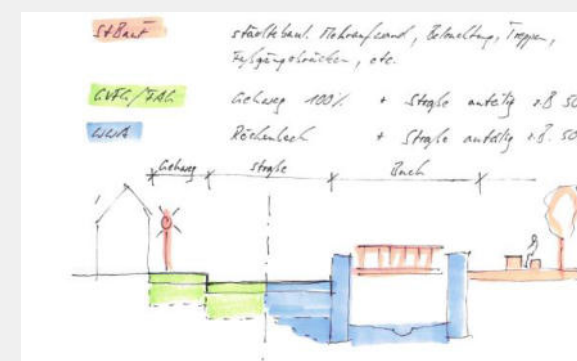 StBauF städtebaul. Mehraufwand, Beleuchtung, Treppen,
Fußgängerbrücken, etc.
GVFG/FAG Gehweg 100% + Straße anteilig z.B. 50
WWA Röthenbach + Straße anteilig z.B. 50
Gehweg Straße Bach